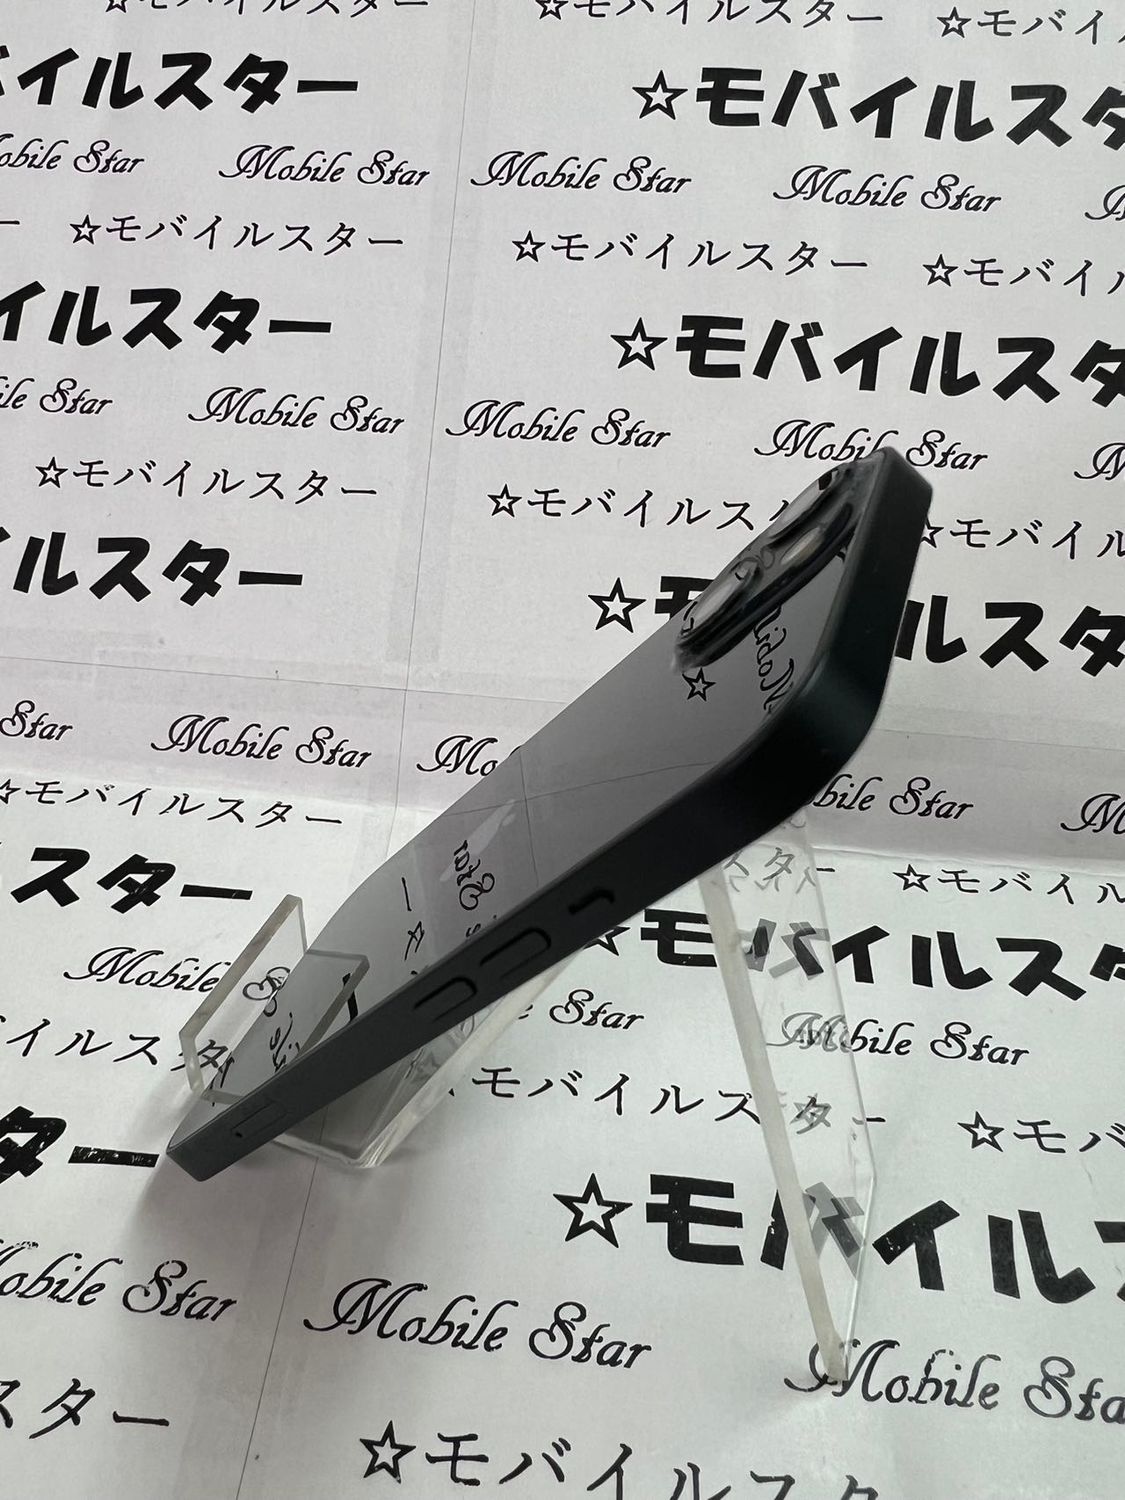 ☆モバイルスター ☆モバイルスター ☆モバイ
バイルスター ☆モバイルスタ
obile Star Mobile Star Mobile Star Mobile Star M
ー ☆モバイルスター ☆モバイルスター ☆モバイ
イルスター ☆モバイルスタ
ile Star Mobile Star Mobile Star Mobil Star M
☆モバイルスター ☆モバイルス モバイル
ルスター ☆モ ルスタ
Star Mobile Star Mo bile Star M
☆モバイルスター スター ☆モバイル
スター ☆モバイルスタ
Mobile S e Star Mobile Star
イルスタ モバイルスター ☆モバ
ター ☆モバイルス
obile Star Mobile Star Mobile Sta
スター ☆モバイルスター